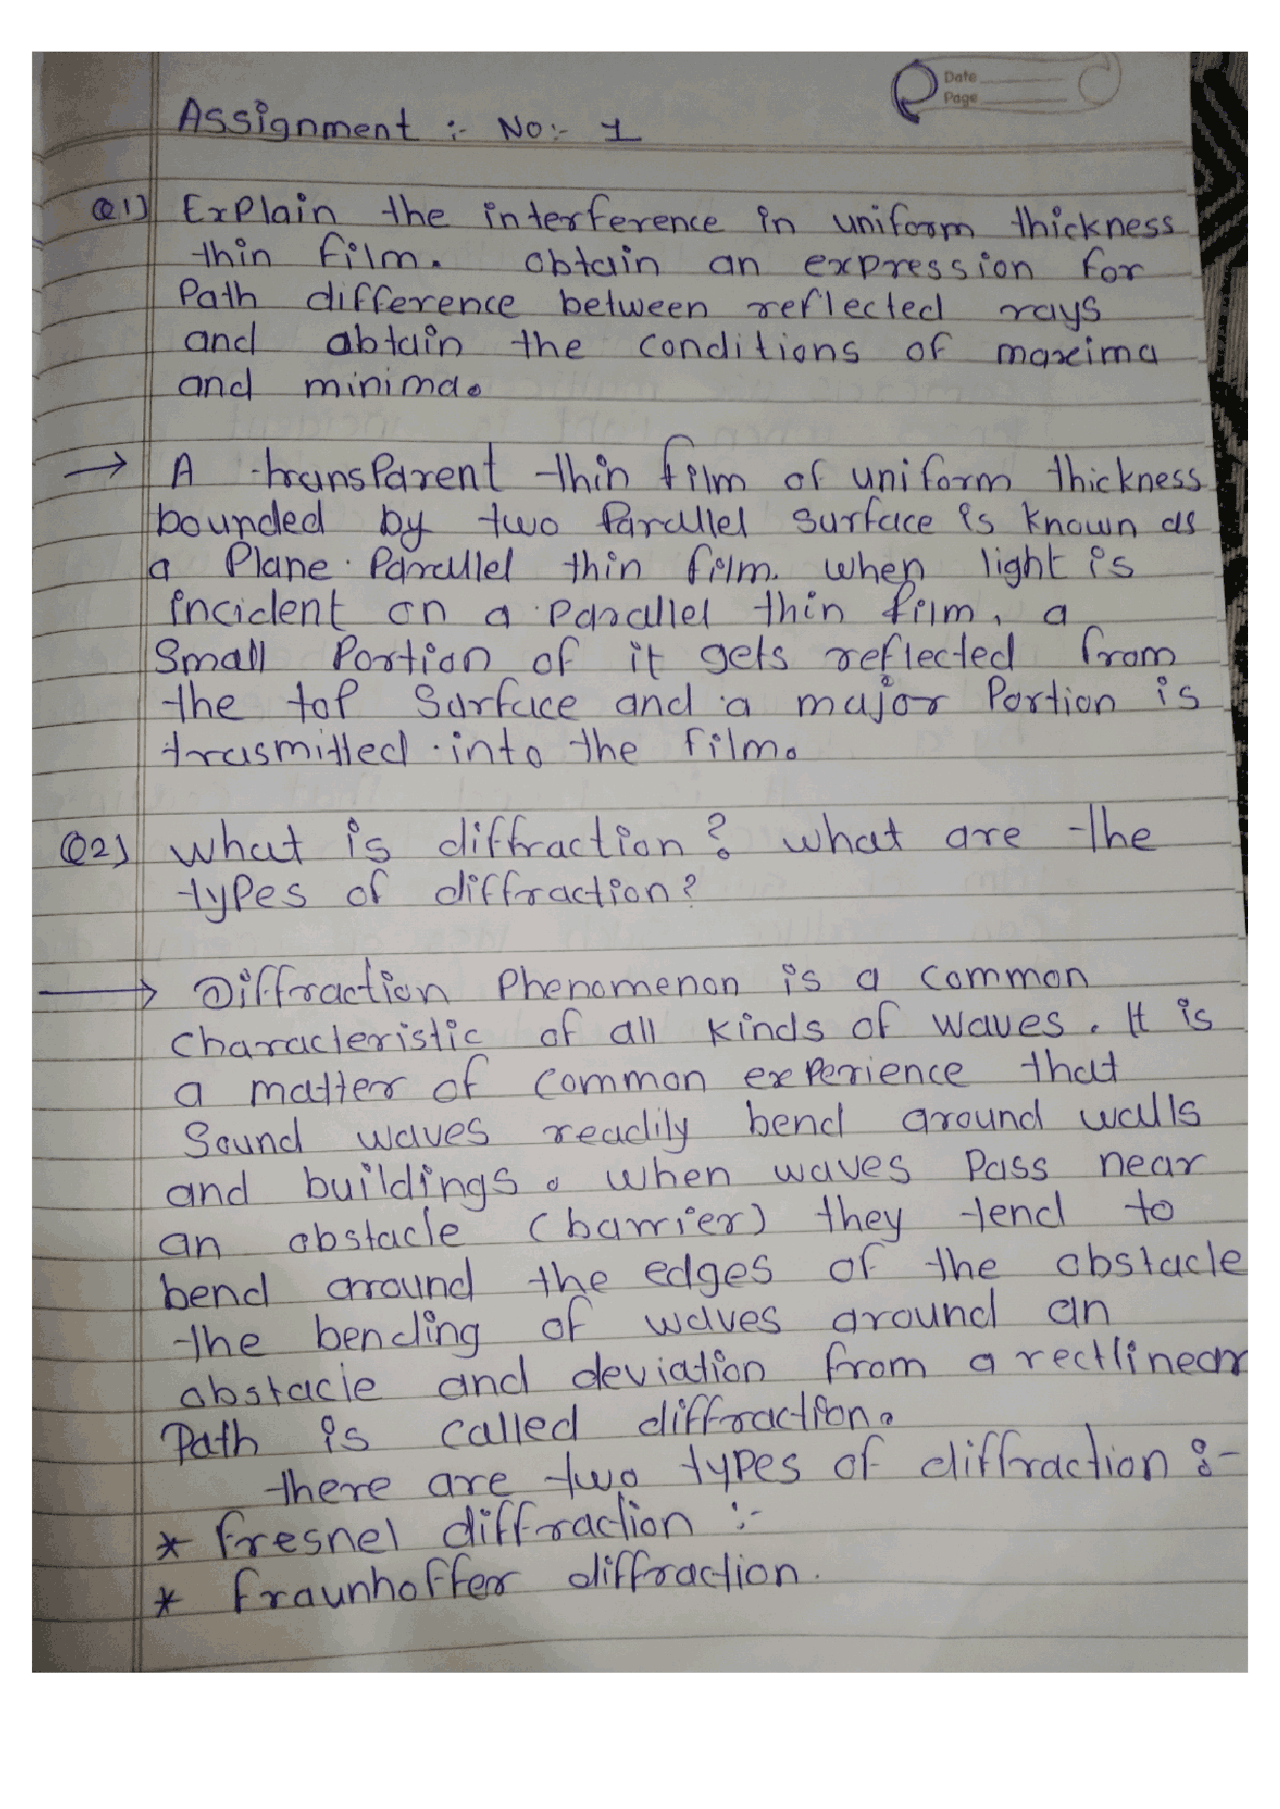 Date
Page
Assignment :- No:- 1
Q1) Explain the interference in uniform thickness
thin film. obtain an expression for
Path difference between reflected rays
and obtain the conditions of maxima
and minima.
→ A transparent thin film of uniform thickness
bounded by two Parallel surface is known as
a Plane Parallel thin film. when light is
incident on a parallel thin film, a
Small Portion of it gets reflected from
the top Surface and a major Portion is
trasmitted into the film.
Q2) what is diffraction? what are the
types of diffraction?
→ Diffraction Phenomenon is a common
characteristic of all kinds of waves. It is
a matter of common experience that
Sound waves readily bend around walls
and buildings. when waves Pass near
an obstacle (barrier) they tend to
bend around the edges of the obstacle
the bending of waves around an
obstacle and deviation from a rectlinear
Path is called diffraction.
there are two types of diffraction :-
* fresnel diffraction :-
* fraunhoffer diffraction.